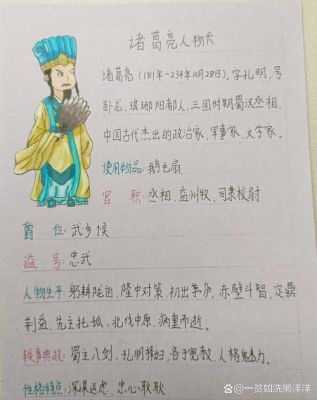 诸葛亮人物卡
诸葛亮(181年-234年10月28日),字孔明,号
卧龙,琅琊阳都人,三国时期蜀汉丞相,
中国古代杰出的政治家、军事家、文学家。
使用物品:鹅毛扇
官 职:丞相、益州牧、司隶校尉
爵 位:武乡侯
谥 号:忠武
人物生平:躬耕陇亩,隆中对策,初出茅庐,赤壁斗智,定鼎
荆益,先主托孤,北伐中原,病重而逝。
轶事典故:蜀主八剑,孔明择妇,各于宽赦,人格魅力。
性格特点:深谋远虑,忠心耿耿
@一贫如洗懒洋洋